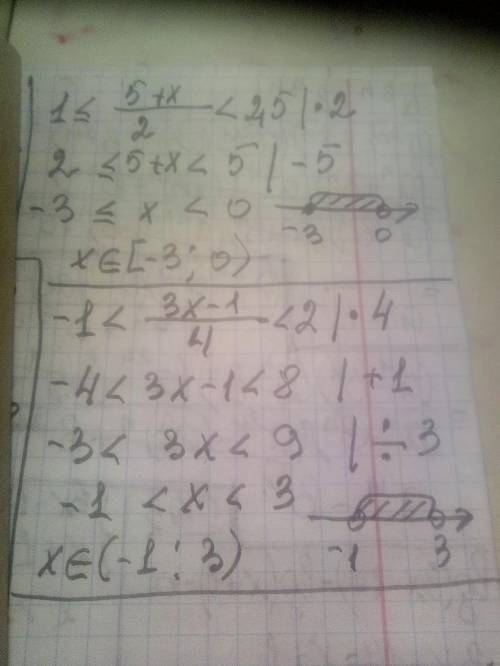 1 ≤ (5+x)/2 < 2,5 | · 2
2 ≤ 5+x < 5 | -5
-3 ≤ x < 0
-3 0
x∈[-3; 0)
-1 < (3x-1)/4 < 2 | · 4
-4 < 3x-1 < 8 | +1
-3 < 3x < 9 | ÷ 3
-1 < x < 3
x∈(-1; 3) -1 3